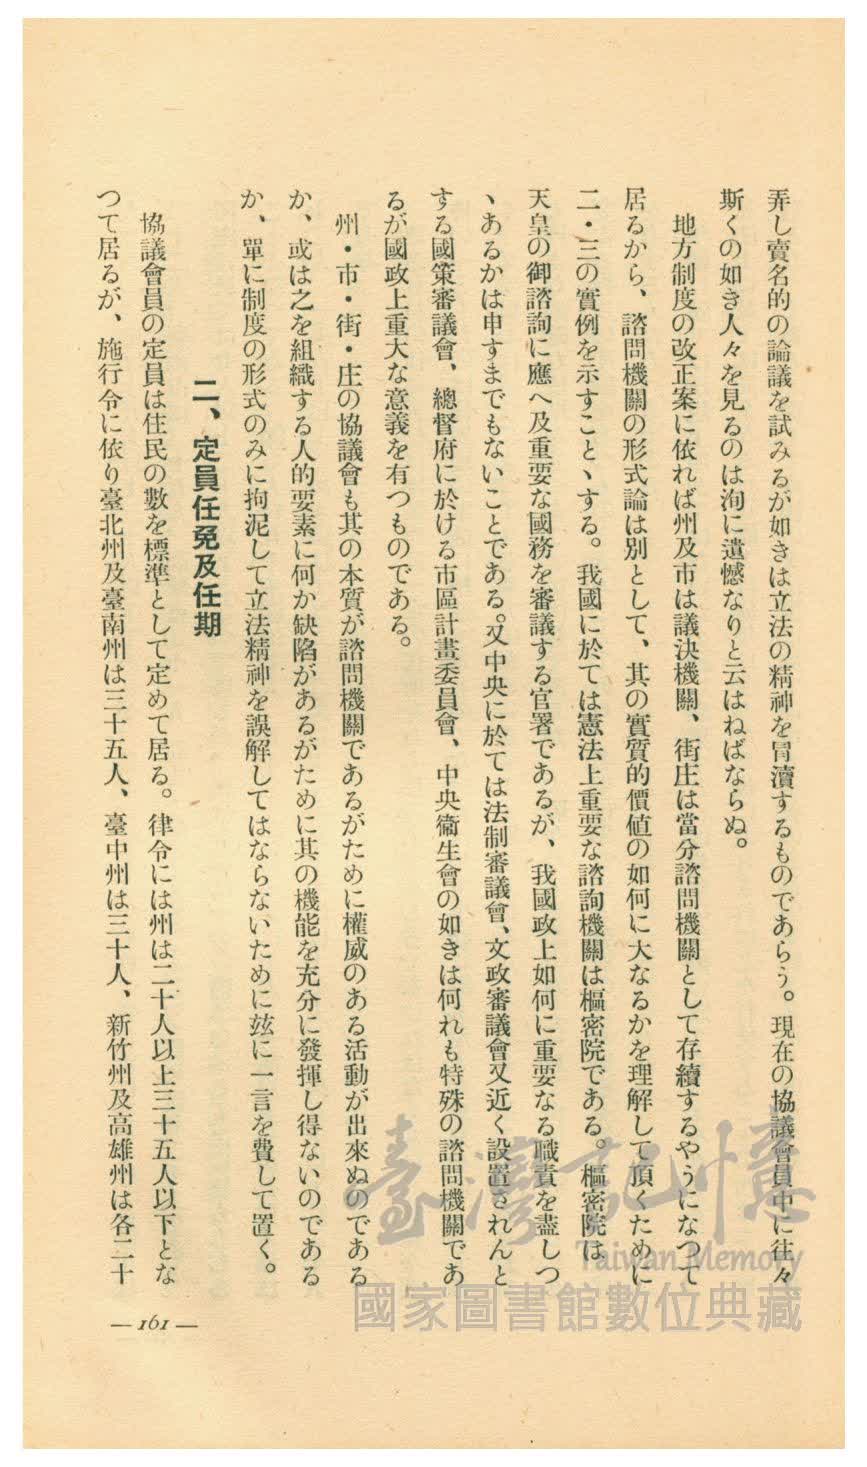 弄し賣名的の論議を試みるが如きは立法の精神を冒瀆するものであらう。現在の協議會員中に往々
斯くの如き人々を見るのは洵に遺憾なりと云はねばならぬ。
地方制度の改正案に依れば州及市は議決機關、街庄は當分諮問機關として存續するやうになつて
居るから、諮問機關の形式論は別として、其の實質的價値の如何に大なるかを理解して頂くために
二・三の實例を示すことヽする。我國に於ては憲法上重要な諮詢機關は樞密院である。樞密院は
天皇の御諮詢に應へ及重要な國務を審議する官署であるが、我國政上如何に重要なる職責を盡しつ
ヽあるかは申すまでもないことである。又中央に於ては法制審議會、文政審議會又近く設置されんと
する國策審議會、總督府に於ける市區計畫委員會、中央衞生會の如きは何れも特殊の諮問機關であ
るが國政上重大な意義を有つものである。
州・市・街・庄の協議會も其の本質が諮問機關であるがために權威のある活動が出來ぬのである
か、或は之を組織する人的要素に何か缺陷があるがために其の機能を充分に發揮し得ないのである
か、單に制度の形式のみに拘泥して立法精神を誤解してはならないために玆に一言を費して置く。
二、定員任免及任期
協議會員の定員は住民の數を標準として定めて居る。律令には州は二十人以上三十五人以下とな
つて居るが、施行令に依り臺北州及臺南州は三十五人、臺中州は三十人、新竹州及高雄州は各二十
— 161 —
臺灣記憶
Taiwan Memory
國家圖書館數位典藏